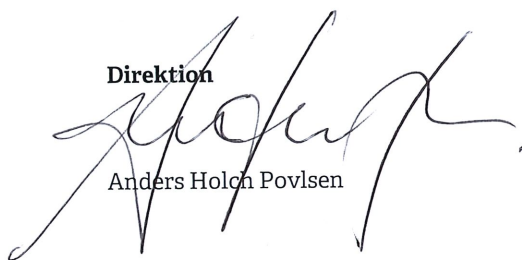 Direktion
Anders Holch Povlsen